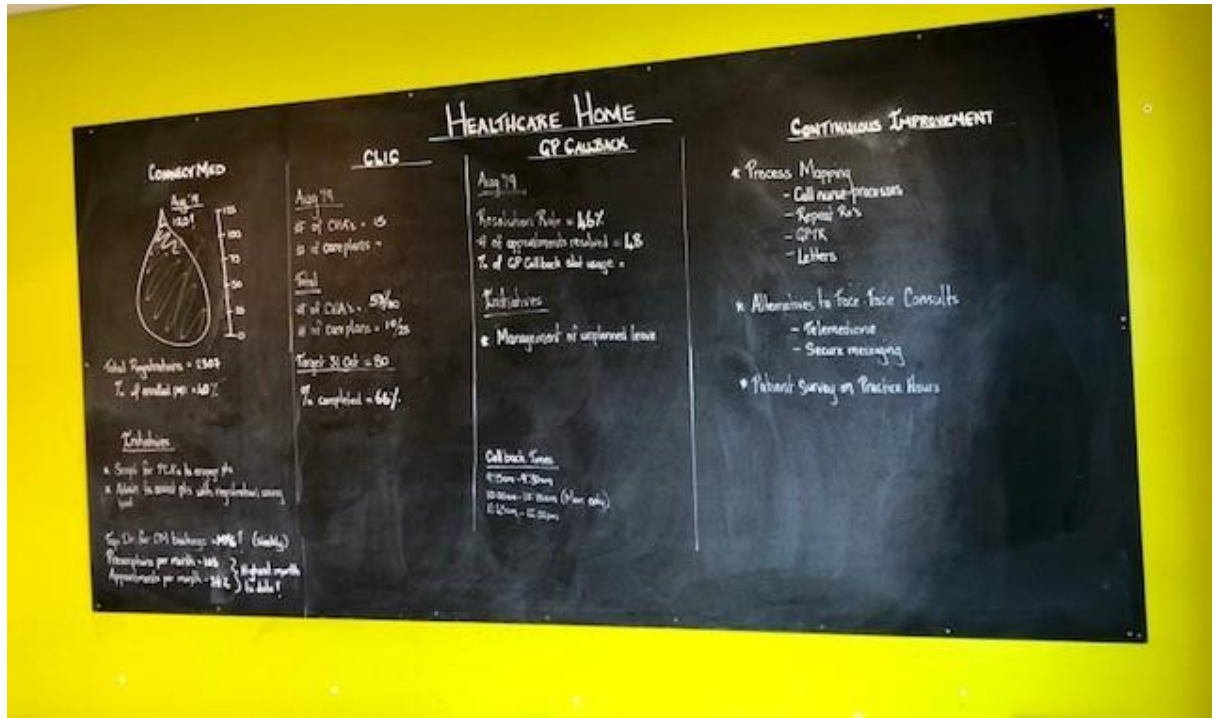 HEALTHCARE HOME
CONNECT MED
Aug '19
120!
125
100
75
50
25
0
Total Registrations = 2307
% of enrolled pop = 40%
Initiatives
* Script for to engage pts
* Admin to assist pts with registration using
Top Dr for CM bookings (weekly)
Prescriptions per month
Appointments per month
Highest month
to date!
CLIC
Aug '19
# of CHAs = 15
# of careplans =
Total
# of CHAs = 53/80
# of careplans = /25
Target 31 Oct = 80
% completed = 66%
GP CALLBACK
Aug '19
Resolution Rate = 46%
# of appointments resolved = 48
% of GP Callback slot usage =
Initiatives
* Management of unplanned leave
Callback Times
9:15am - 9:30am
(Mon only)
CONTINUOUS IMPROVEMENT
* Process Mapping
- Call nurse processes
- Repeat Rx's
- Letters
* Alternatives to Face-Face Consults
- Telemedicine
- Secure messaging
* Patient Survey on Practice Hours